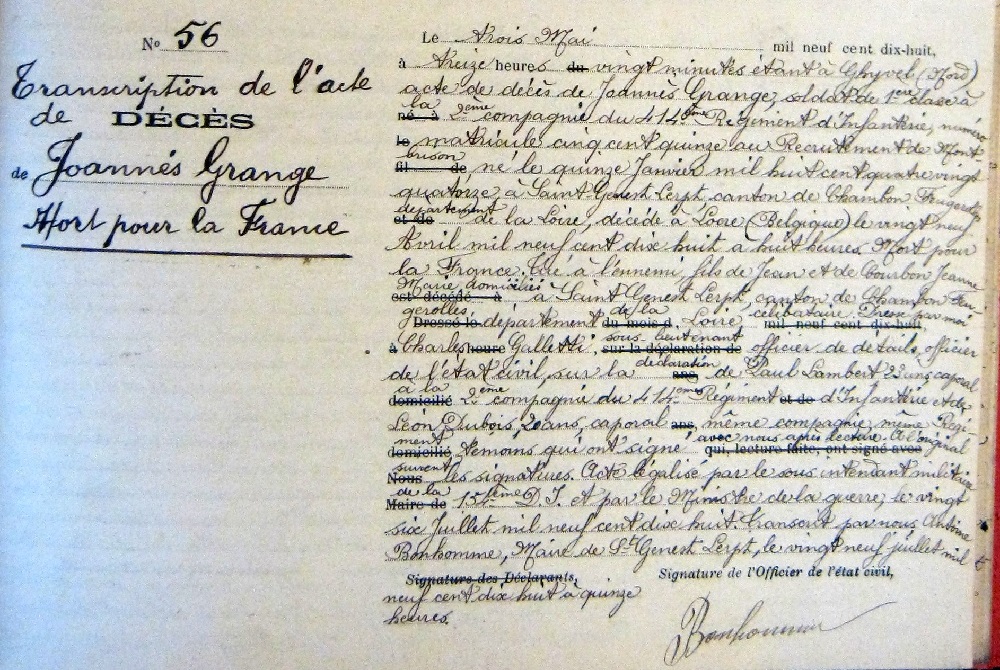 No 56
Transcription de l'acte
de DÉCÈS
de Joannés Grange
Mort pour la France
Le trois Mai mil neuf cent dix-huit,
à treize heures du vingt minutes étant à Ghyvel (Nord)
acte de décès de Joannès Grange, soldat de 1ere classe à
la
né à 2ème compagnie du 414ème Régiment d'Infanterie, numéro
le matricule cinq cent quinze au Recrutement de Mont
brison
fil de né le quinze Janvier mil huit cent quatre vingt
quatorze à Saint Genest Lerpt canton de Chambon Feugerolles
département
et de de la Loire, décédé à Locre (Belgique) le vingt neuf
Avril mil neuf cent dix huit à huit heures. Mort pour
la France. Tué à l'ennemi, fils de Jean et de Bourbon Jeanne
Marie domiciliés
est décédé à à Saint Genest Lerpt, canton de Chambon Feu
gerolles, de la célibataire. Dressé par moi
Dressé le département du mois d Loire, mil neuf cent dix-huit,
sous lieutenant
à Charles heure Galletti, sur la déclaration de officier de détails, officier
déclaration
de l'état civil, sur la ans, de Paul Lambert 22 ans caporal
à la
domicilié 2ème compagnie du 414ème Régiment et de d'Infanterie et de
Léon Dubois, 20 ans, caporal ans, même compagnie, même Régi
ment avec nous après lecture. A l'original
domicilié témoins qui ont signé qui, lecture faite, ont signé avec
suivent
Nous les signatures. Acte légalisé par le sous intendant militaire
de la
Maire de 154ème D. I. et par le Ministre de la guerre, le vingt
six Juillet mil neuf cent dix huit. Transcrit par nous Antoine
Bonhomme, Maire de St Genest Lerpt, le vingt neuf juillet mil
Signature des Déclarants, Signature de l'Officier de l'état civil,
neuf cent dix huit à quinze
heures.
Bonhomme